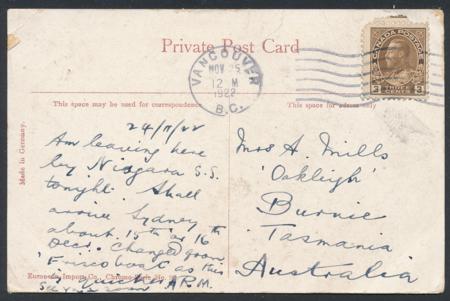 Private Post Card
VANCOUVER
NOV 25
12 M
1922
B.C.
CANADA POSTAGE
3 THREE CENTS 3
This space may be used for correspondence
This space for address only
Made in Germany.
24/11/22
Am leaving here
by Niagara S.S.
tonight. Shall
arrive Sydney
about 15th or 16th
Decr. Changed from
'Frisco boat as this
is quicker A.R.M.
See you soon
European Import Co.,
Mrs A. Mills
'Oakleigh'
Burnie
Tasmania
Australia